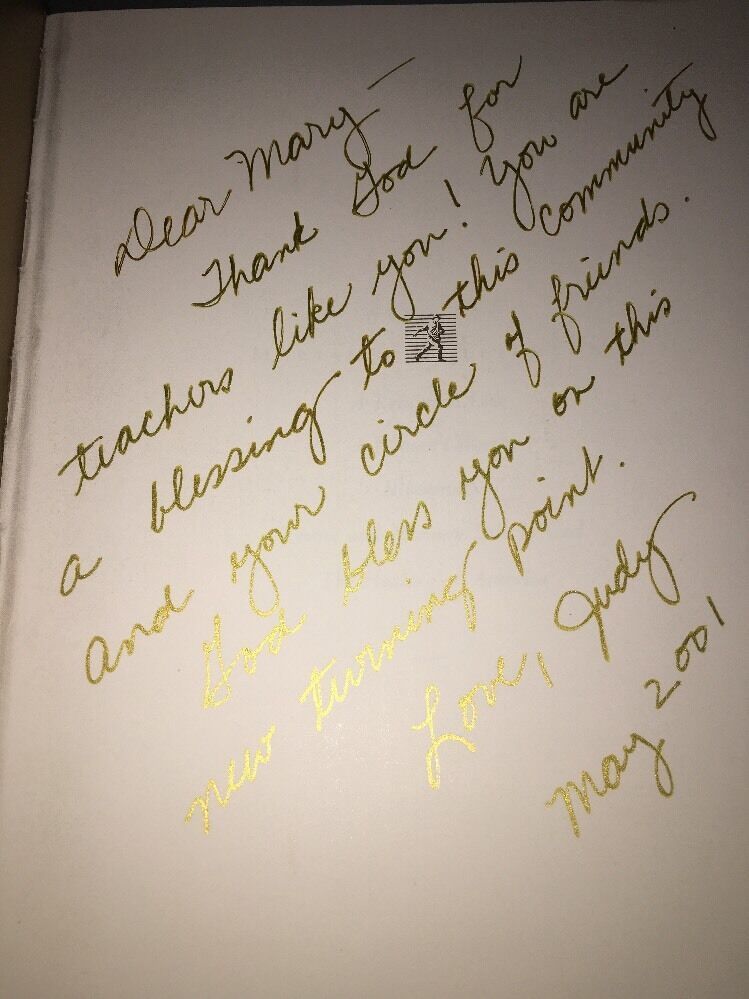 Dear Mary —
Thank God for
teachers like you! You are
a blessing to this community
and your circle of friends.
God bless you on this
new turning point.
Love, Judy
May 2001